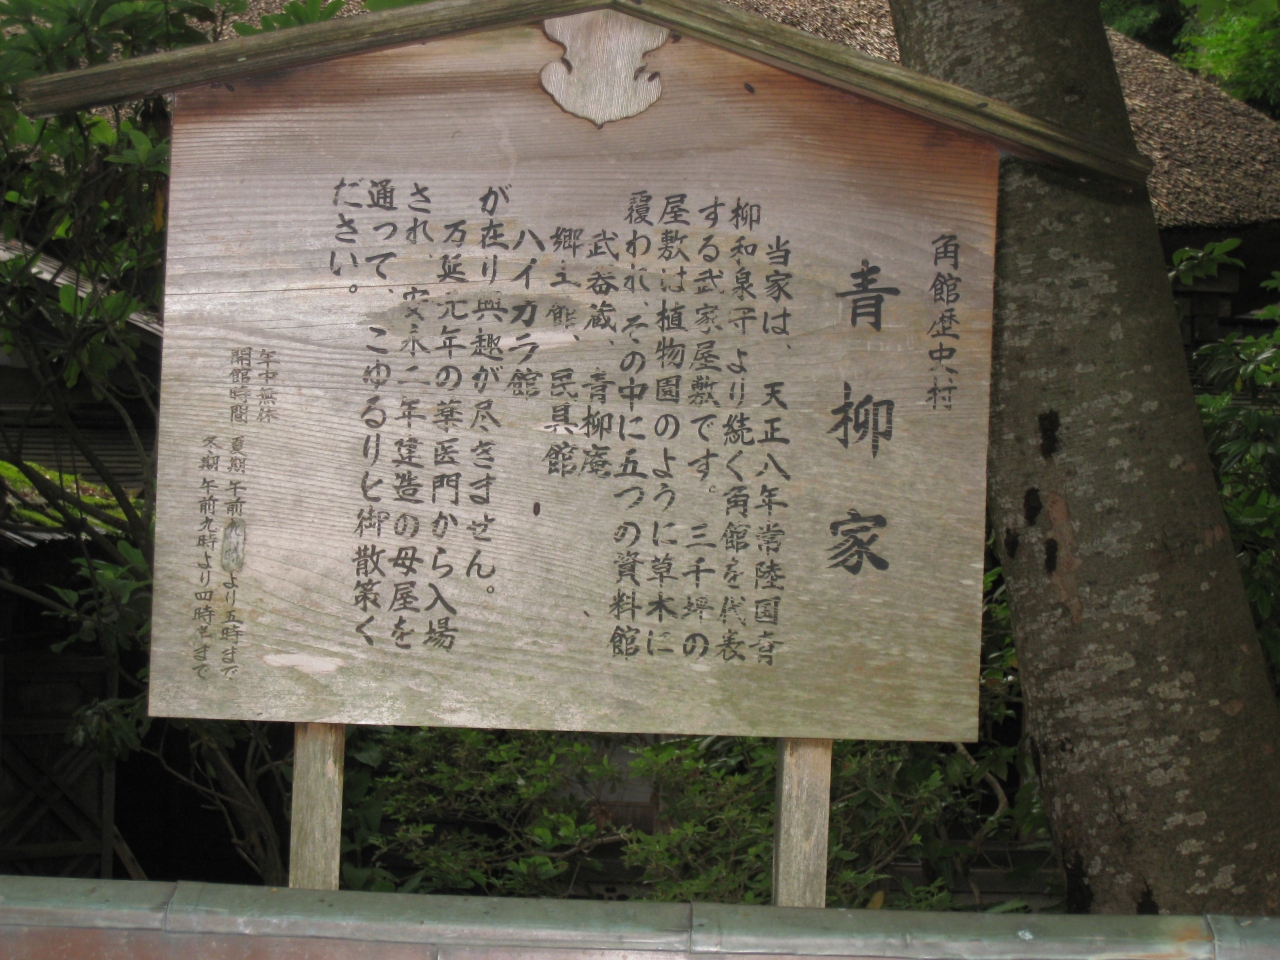 角館歴史村
青柳家
当家は、天正八年常陸国青
柳和泉守より続く角館を代表
する武家屋敷です。三千坪の
屋敷は植物園のように草木に
覆われ、その中に五つの資料館
武器蔵、青柳庵、
郷土館、民具館
ハイカラ館
が在り興趣が尽きません。
万延元年の薬医門から入場
され、安永二年建造の母屋を
通って、こゆるりと御散策く
ださい。
年中無休
開館時間 夏期 午前九時より五時まで
冬期 午前九時より四時半まで